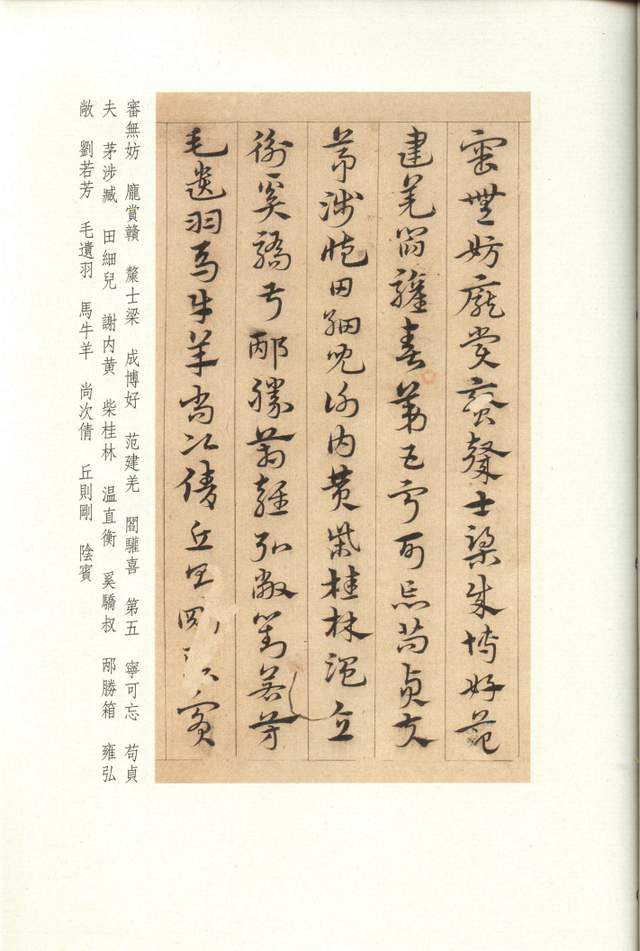 審無妨龐賞贛釐士梁成博好范
建羌閻驩喜第五寧可忘苟貞夫
茅涉臧田細兒謝内黄柴桂林温直
衡奚驕叔邴勝箱雍弘敞劉若芳
毛遺羽馬牛羊尚次倩丘則剛陰賓
審無妨 龐賞贛 釐士梁 成博好 范建羌 閻驩喜 第五 寧可忘 苟貞
夫 茅涉臧 田細兒 謝内黄 柴桂林 温直衡 奚驕叔 邴勝箱 雍弘
敞 劉若芳 毛遺羽 馬牛羊 尚次倩 丘則剛 陰賓